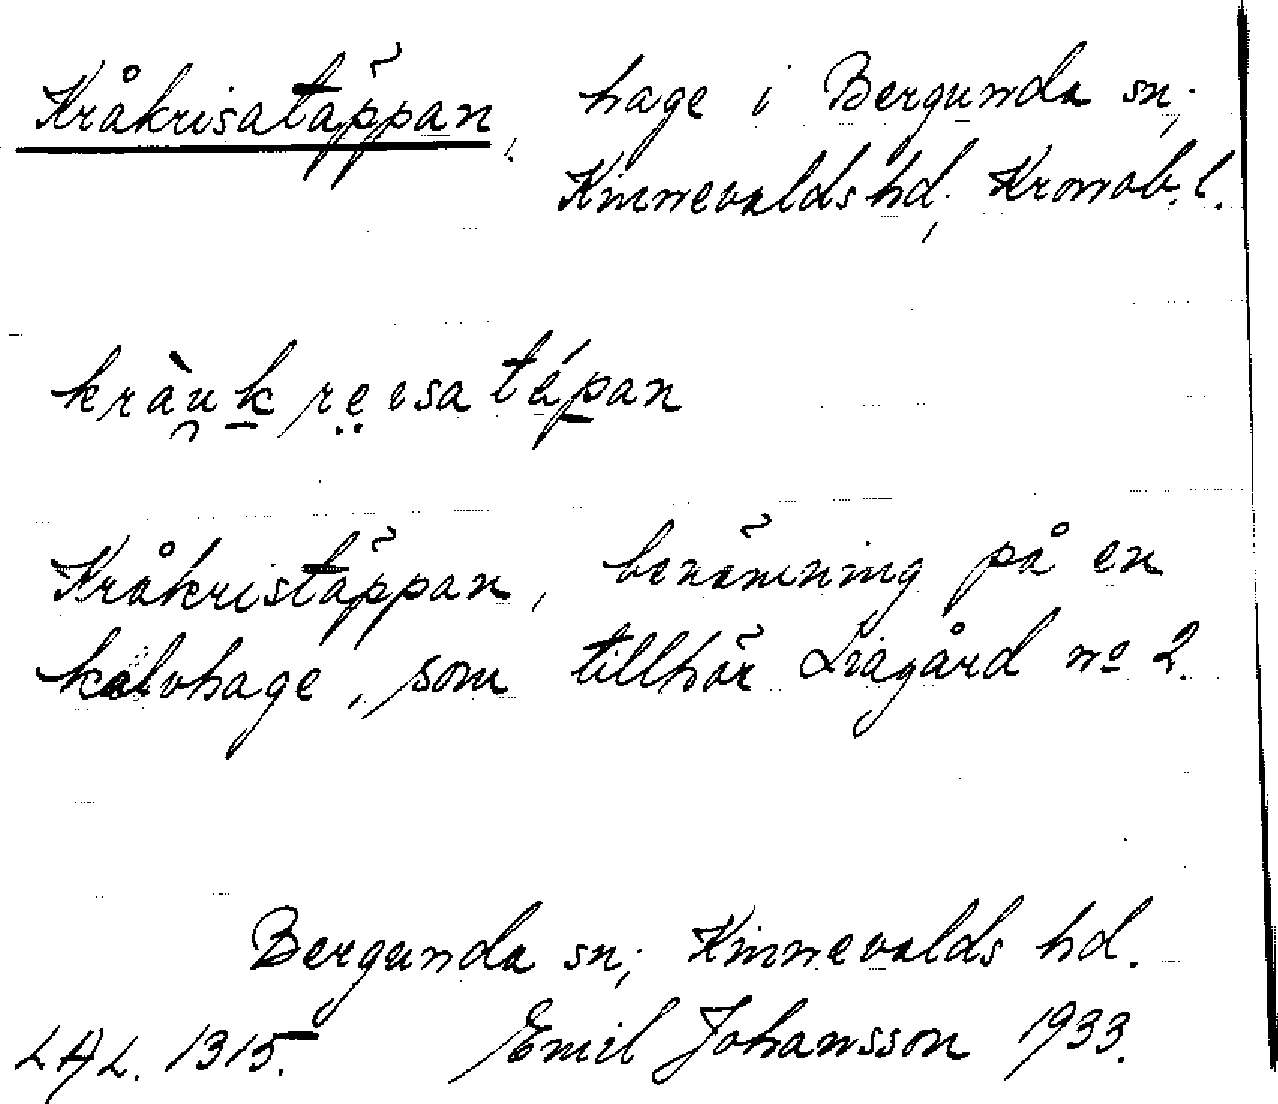 Kråkrisatäppan, hage i Bergunda sn;
Kinnevalds hd, Kronob. l.
kràu̯k re̤isa tépan
Kråkristäppan, benämning på en
kalvhage, som tillhör Liagård no 2.
Bergunda sn; Kinnevalds hd.
LAL. 1315. Emil Johansson 1933.